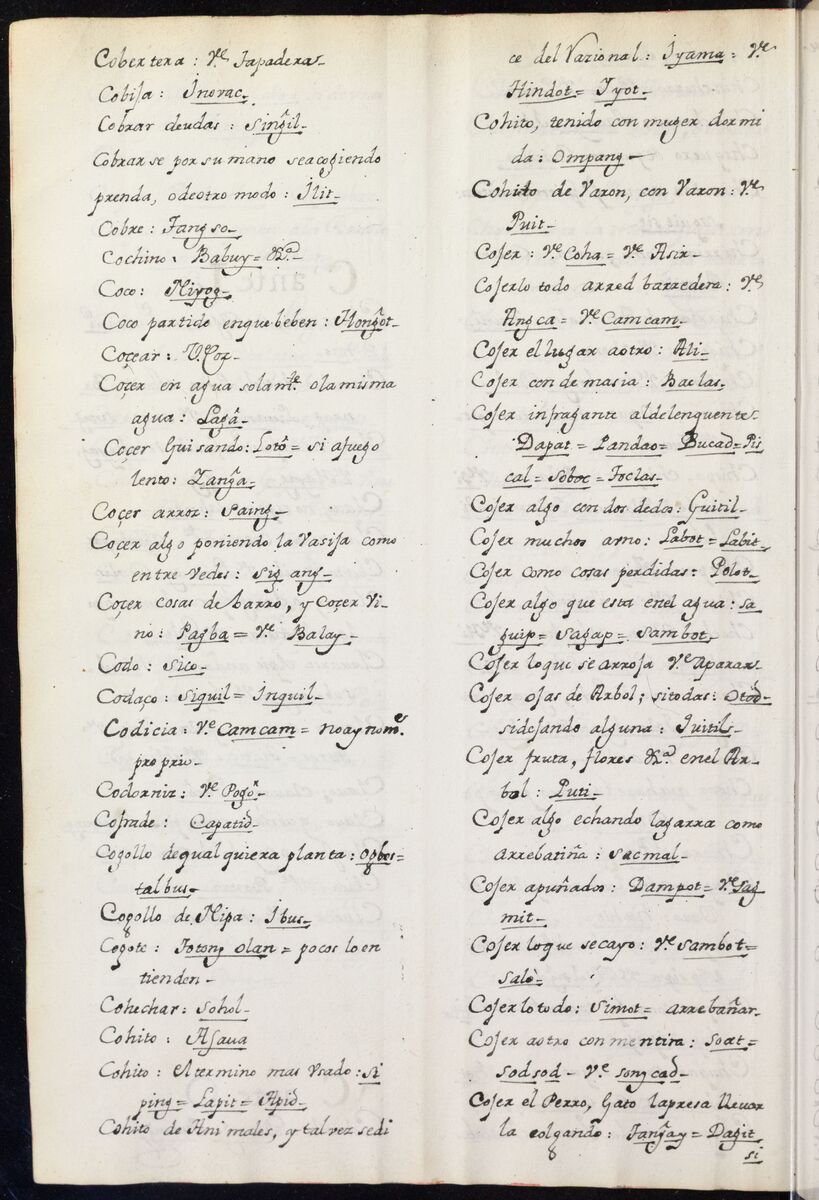 Cobertera: Vͤ Tapadera-
Cobija: Inorac-
Cobrar deudas: Singĩl-
Cobrarse por su mano seacogiendo
prenda, odeotro modo: Ilit-
Cobre: Tangso-
Cochino: Babuy= &ª-
Coco: Niyog-
Coco partido enque beben: Hongot-
Coçear:
Coçer en agua solamᵗᵉ olamisma
agua: Lagã-
Coçer Guisando: Lotõ= si afuego
lento: Tangã-
Coçer arroz: Saing-
Coçer algo poniendo la Vasija como
entre Vedes: Sig ang-
Coçer cosas de barro, y Coçer Vi-
no: Pagba= Vͤ Balay-
Codo: Sico-
Codaço: Siquil= Inquil-
Codicia: Vͤ Camcam= no ay nomᵉ
proprio-
Codorniz: Vͤ Pogõ-
Cofrade: Capatid-
Cogollo dequalquiera planta: Ogbos=
talbus-
Cogollo de Nipa: Ibus-
Cogote: Totong olan= pocos lo en
tienden-
Cohechar: Sohol-
Cohito: Asaua
Cohito: El termino mas Vsado: si
ping= Lapit= Apid-
Cohito de Animales, y tal vez sedi
ce del Razional: Iyama= Vͤ
Hindot= Iyot-
Cohito, tenido con muger dormi
da: Ompang-
Cohito de Varon, con Varon: Vͤ
Puit-
Cojer: Vͤ Coha= Vͤ Asir-
Cojerlo todo arred barredera: Vͤ
Angca= Vͤ Camcam-
Cojer el lugar aotro: Ali-
Cojer con de masia: Baclas-
Cojer infragante aldelenquente-
Dapat= Pandao= Bucad= Pis
cal= Soboc= Toclas-
Cojer algo con dos dedos: Guitil-
Cojer muchos arno: Labot= Labit-
Cojer como cosas perdidas: Polot-
Cojer algo que esta enel agua: sa
guip= Sagap= Sambot-
Cojer loque se arroja Vͤ aparar-
Cojer ojas de Arbol; sitodas: Otod-
sidejando alguna: Quitil-
Cojer fruta, flores &ª enel Ar-
bol: Puti-
Cojer algo echando lagarra como
arrebatiña: Sacmal-
Cojer apuñados: Dampot= Vͤ Sag
mit-
Cojer loque secayo: Vͤ Sambot=
Salò-
Cojerlo todo: Simot= arrebañar-
Cojer aotro con mentira: Soat=
Sodsod- Vͤ Songcad-
Cojer el Perro, Gato lapresa llevar
la colgando: Tangãy= Dagit
si